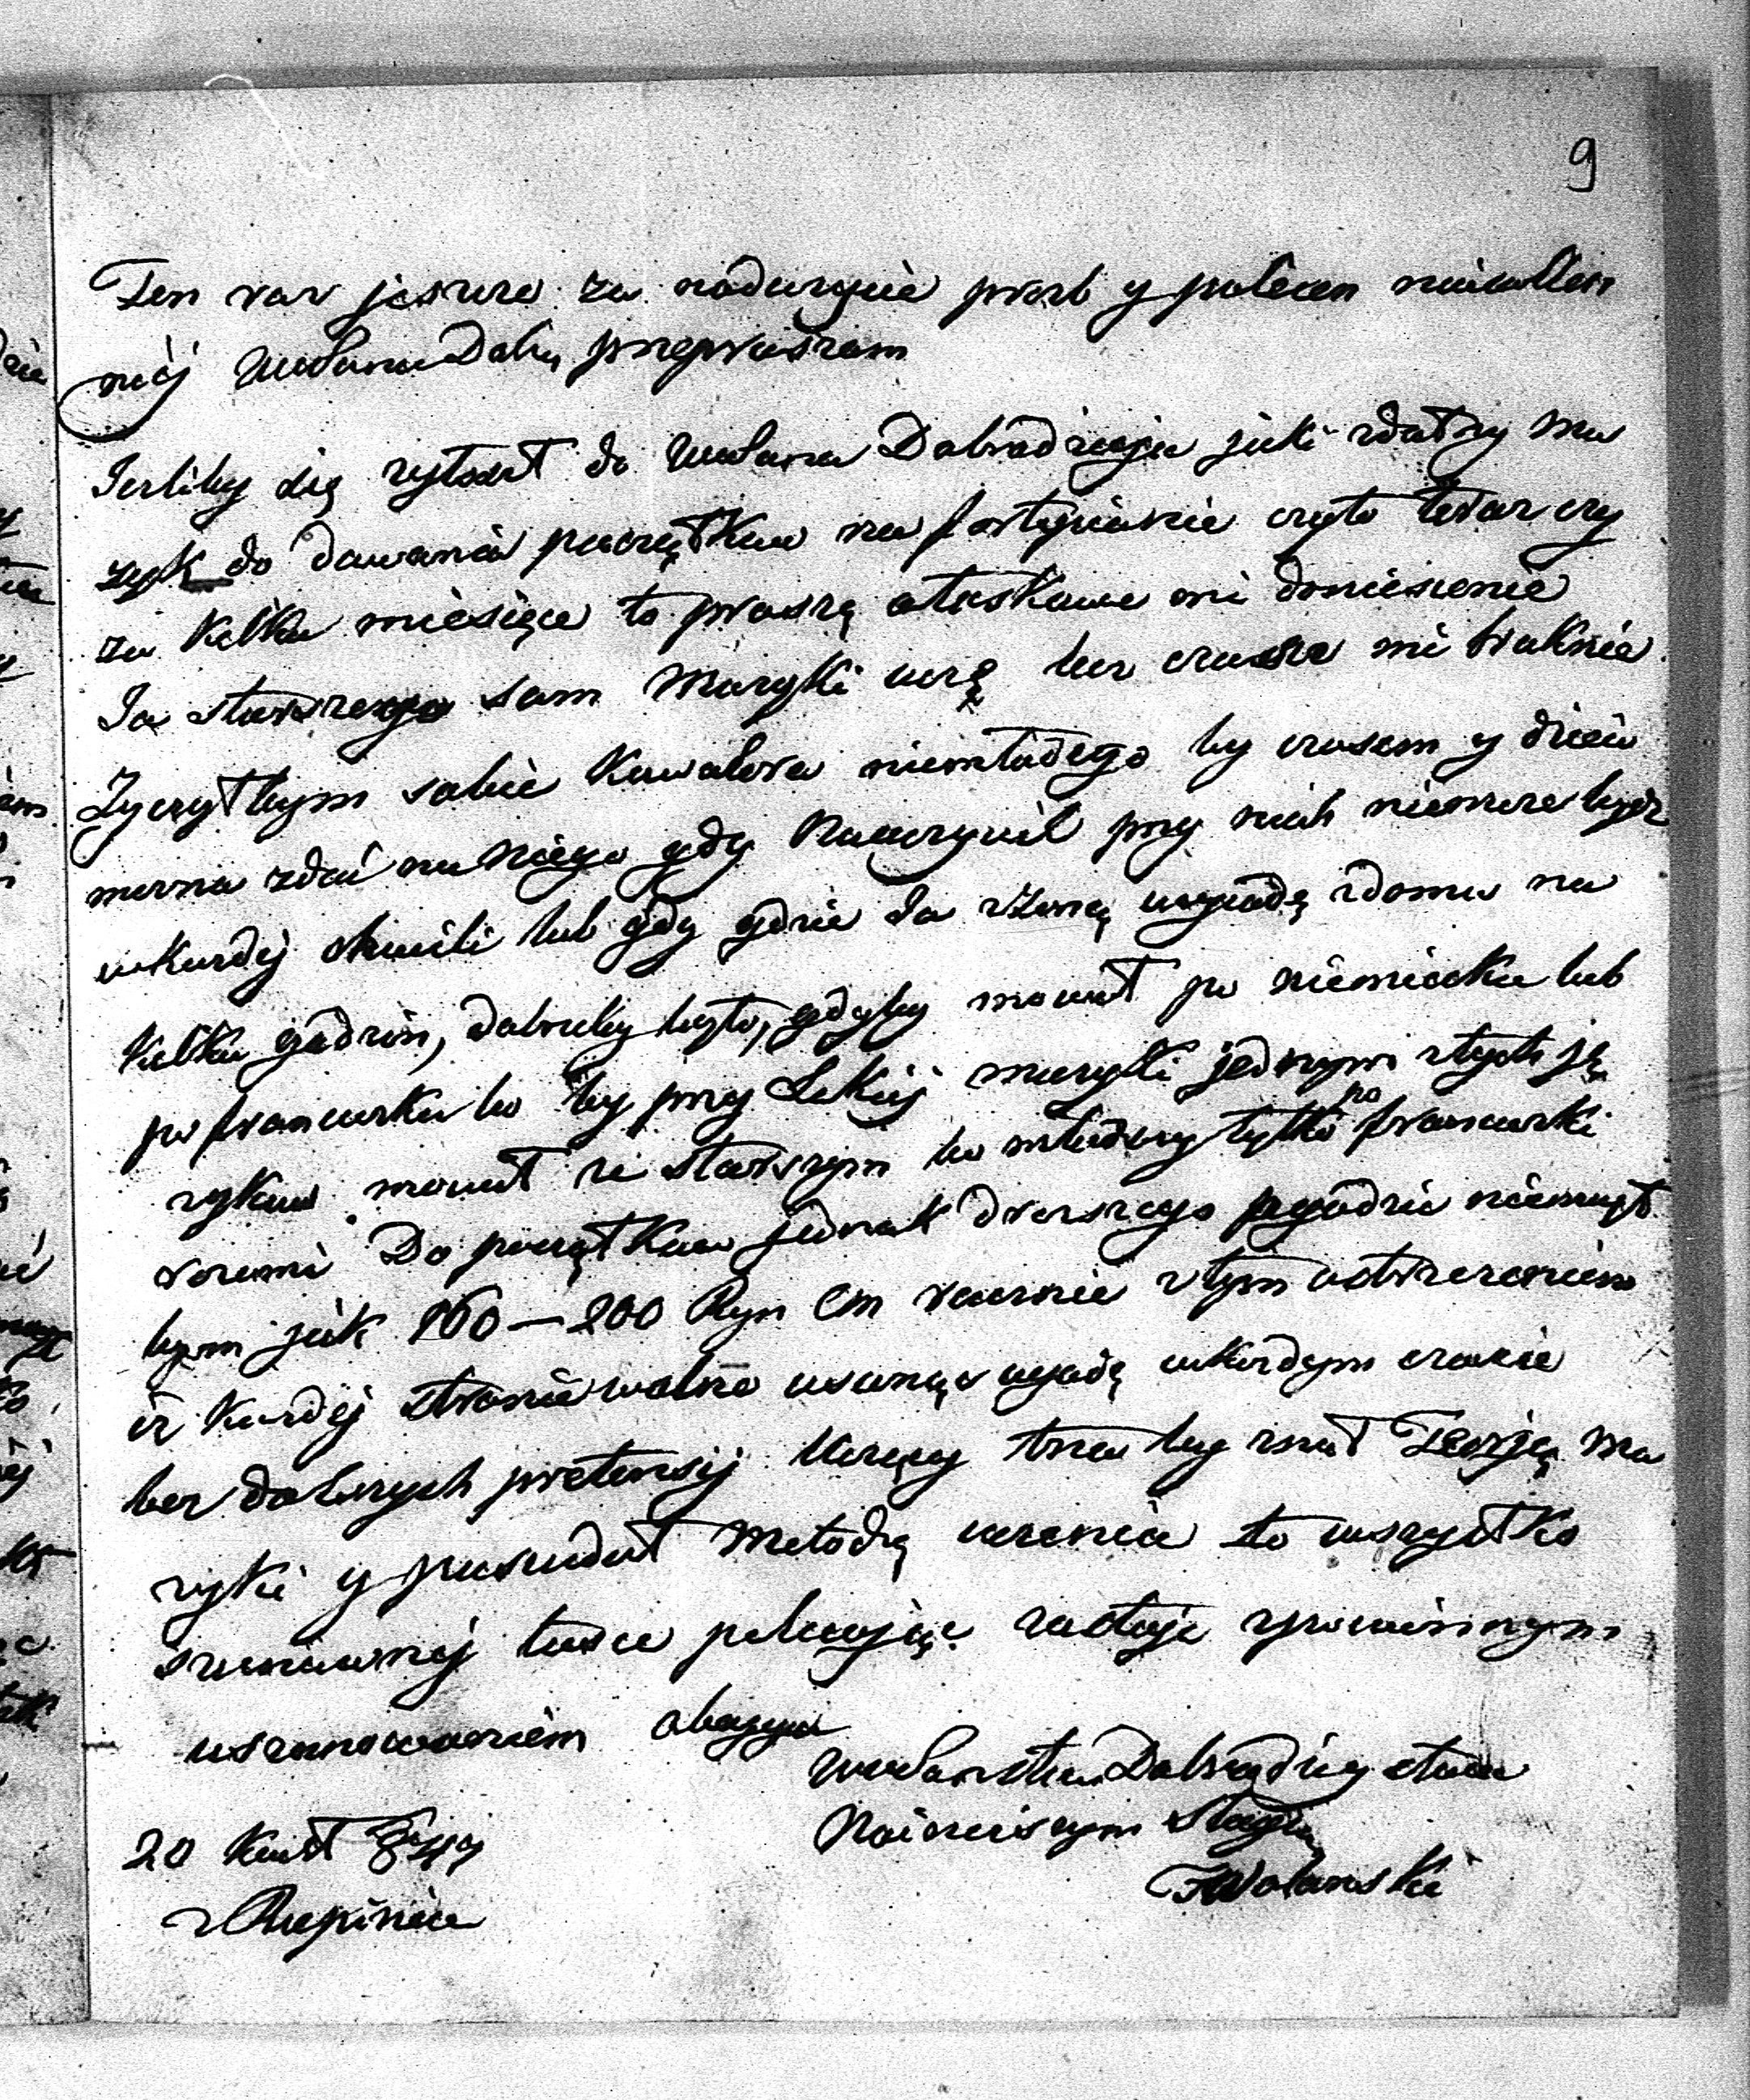 9
Ten raz jeszcze za nadużycie prośb y poleceń
mój WwPana Dobr. przepraszam
Jesliby się zgłosił do WwPana Dobrodzieja jaki zdatny mu
zyk do dawania początkow na fortepianie czyto teraz czy
za kilka miesięcy to proszę ołaskawe mi doniesienie
Ja starszego sam Muzyki uczę lecz czasu mi braknie
Zyczyłbym sobie Kawalera niemłodego by czasem y dzieci
można zdać na niego gdy Nauczyciel przy nich niemoże bydz
wkażdej chwili lub gdy gdzie Ja zżoną wyjadę zdomu na
kilka godzin, dobrzeby było, gdyby mówił po niemiecku lub
po francusku bo by przy Lekcij muzyki jednym ztych ję
zykow mówił ze starszym bo młodszy tylko po francuzki
rozumi Do początkow jednak droższego niemógł
bym jak 160–200 Ryn CM rocznie ztym ostrzeżeniem
iż każdej stronie wolno usunąć ugodę wkażdym czasie
bez dalszych pretensij Uczący trza by znał Teorją Mu
zyki y posiadał Metodę uczenia to wszystko
szanownej łasce polecając zostaję zpowinnym
uszanowaniem obojga
WwPaństwa Dobrodziejstwa
Nainiższym Sługą
Wolanski
20 Kwiet 847
z Rzepińca